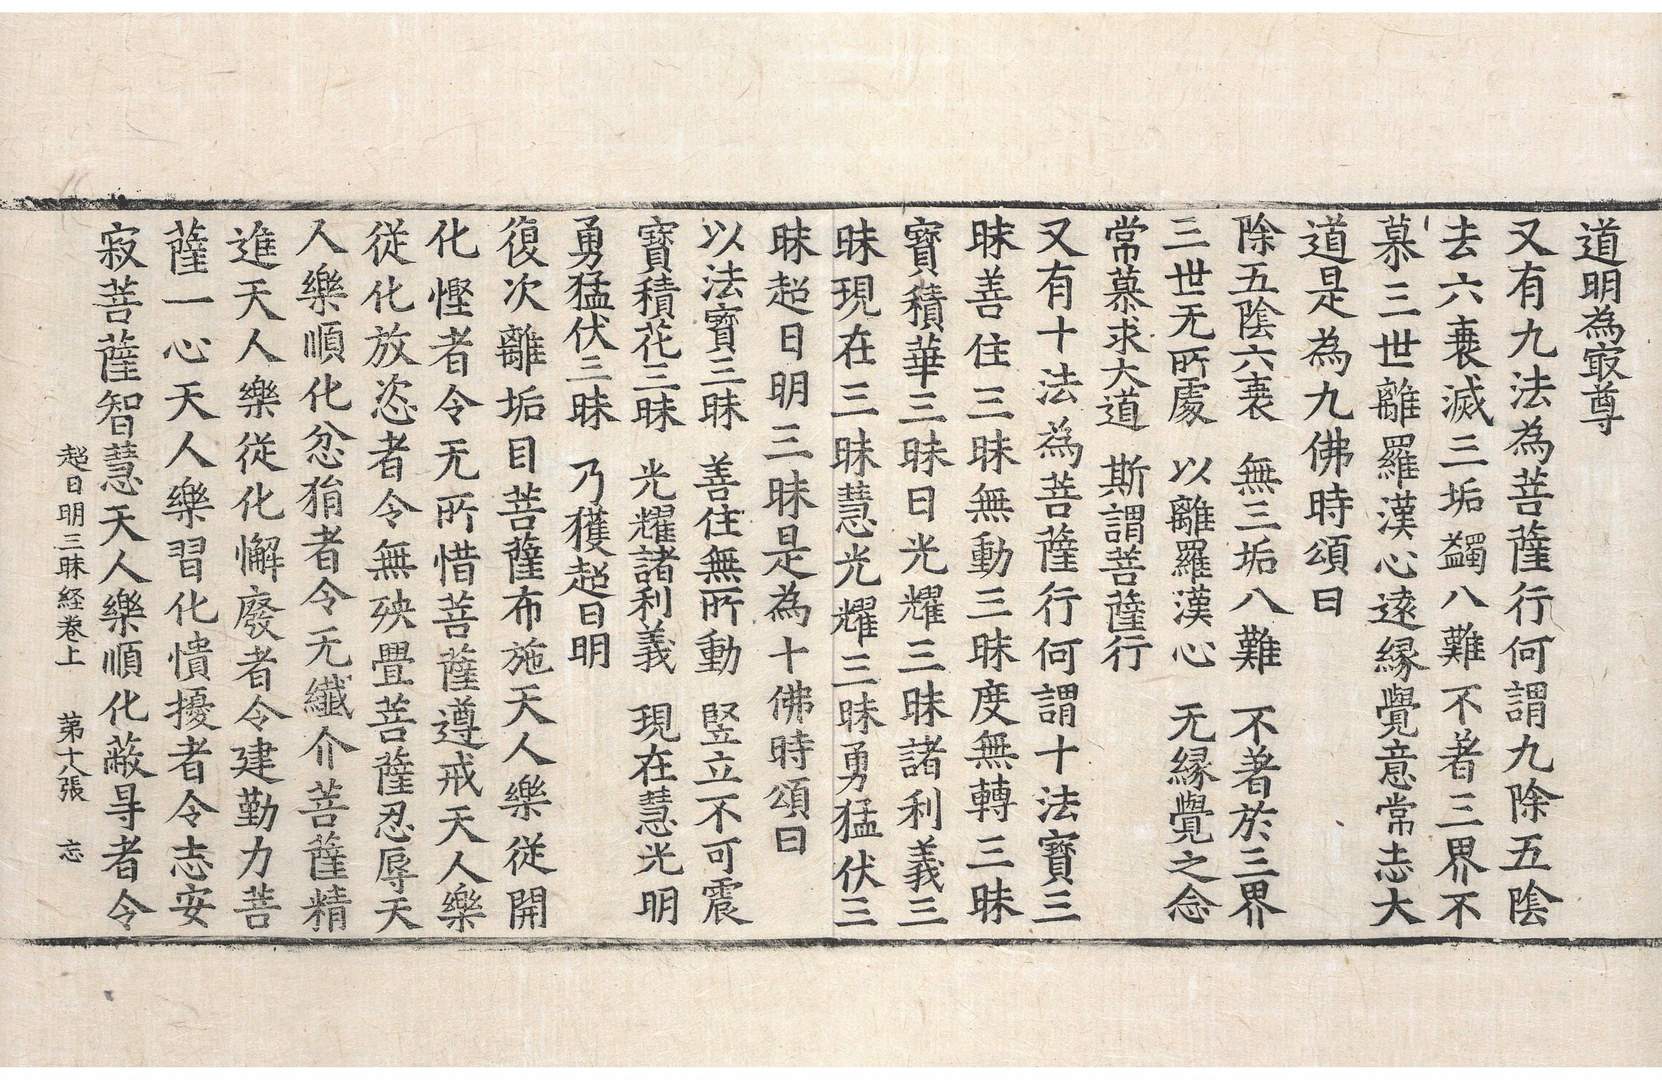 道明為㝡尊
又有九法為菩薩行何謂九除五陰
去六衰滅三垢蠲八難不著三界不
慕三世離羅漢心遠緣覺意常志大
道是為九佛時頌曰
除五陰六衰　無三垢八難　不著於三界
三世无所處　以離羅漢心　无緣覺之念
常慕求大道　斯謂菩薩行
又有十法為菩薩行何謂十法寶三
昧善住三昧無動三昧度無轉三昧
寶積華三昧日光耀三昧諸利義三
昧現在三昧慧光耀三昧勇猛伏三
昧超日明三昧是為十佛時頌曰
以法寶三昧　善住無所動　竪立不可震
寶積花三昧　光耀諸利義　現在慧光明
勇猛伏三昧　乃獲超日明
復次離垢目菩薩布施天人樂從開
化慳者令无所惜菩薩遵戒天人樂
從化放恣者令無殃舋菩薩忍辱天
人樂順化忿狷者令无纖介菩薩精
進天人樂從化懈廢者令建勤力菩
薩一心天人樂習化憒擾者令志安
寂菩薩智慧天人樂順化蔽㝵者令
超日明三昧経卷上　第十八張　忘